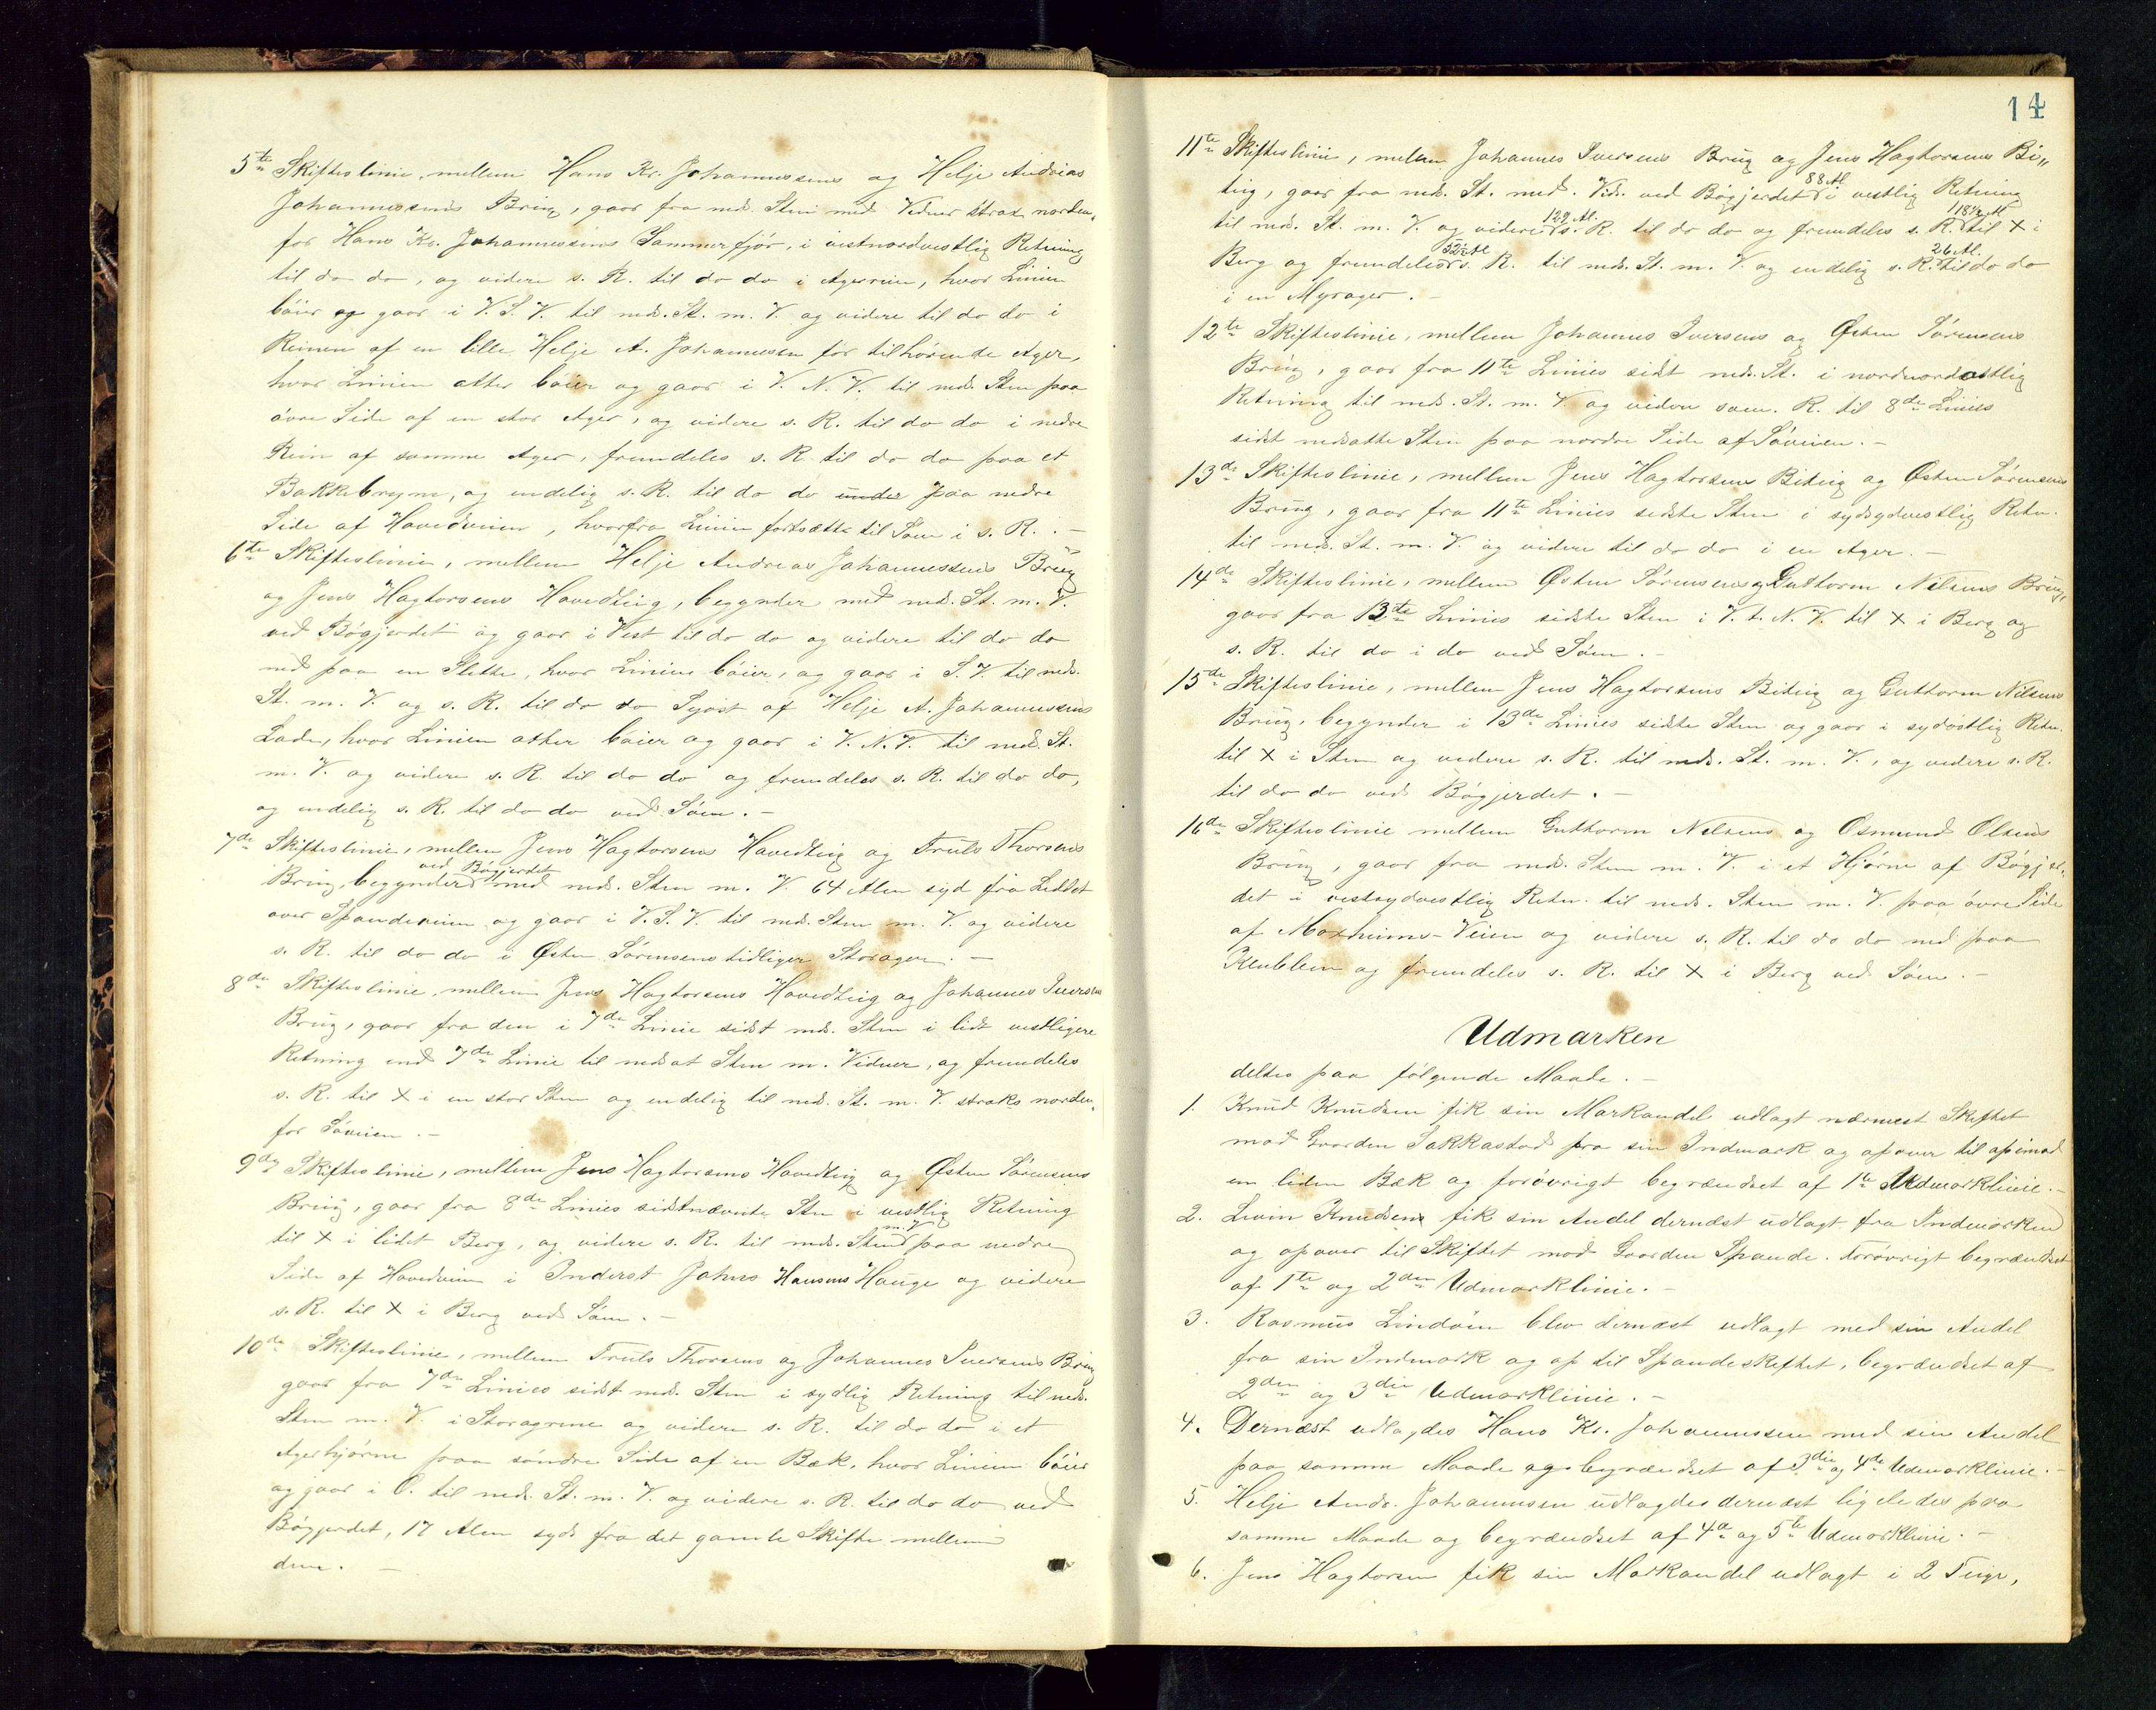 5te Skifteslinie, mellem Hans Kr. Johannessens og Helje Andreas
Johannessens Brug, gaar fra neds. Sten med Vidner strax norden-
for Hans Kr. Johannessens Sommerfjös, i vestnordvestlig Retning
til do do, og videre s. R. til do do i Agerrein, hvor Linien
böier og gaar i V. S. V. til neds. St. m. V. og videre til do do i
Reinen af en lille Helje A. Johannessen för tilhörende Ager,
hvor Linien atter böier og gaar i V. N. V. til neds. Sten paa
övre Side af en stor Ager, og videre s. R. til do do i nedre
Rein af samme Ager, fremdeles s. R. til do do paa et
Bakkebryn, og endelig s. R. til do do under paa nedre
Side af Hovedveien, hvorfra Linien fortsætte til Söen i s. R. –
6te Skifteslinie, mellem Helje Andreas Johannessens Brug
og Jens Hagtorsens Hovedteig, begynder med neds. St. m. V.
ved Bögjerdet og gaar i Vest til do do og videre til do do
ned paa en Slette, hvor Linien böier, og gaar i S. V. til neds.
St. m. V. og s. R. til do do Syöst af Helje A. Johannessens
Lade, hvor Linien atter böier og gaar i V. N. V. til neds. St.
m. V. og videre s. R. til do do og fremdeles s. R. til do do,
og endelig s. R. til do do ved Söen. –
7de Skifteslinie, mellem Jens Hagtorsens Hovedteig og Truls Thorsens
ved Bögjerdet
Brug, begynder med neds. Sten m. V. 64 Alen syd fra Leddet
over Spandeveien og gaar i V. S. V. til neds. Sten m. V. og videre
s. R. til do do i Östen Sörensens tidligere Storager. –
8de Skifteslinie, mellem Jens Hagtorsens Hovedteig og Johannes Iversens
Brug, gaar fra den i 7de Linie sidst neds. Sten i lidt vestligere
Retning end 7de Linie til nedsat Sten m. Vidner, og fremdeles
s. R. til X i en stor Sten og endelig til neds. St. m. V. straks norden-
for Söveien. –
9de Skifteslinie, mellem Jens Hagtorsens Hovedteig og Östen Sörensens
Brug, gaar fra 8de Linies sidstnævnte Sten i vestlig Retning
m. V
til X i lidet Berg, og videre s. R. til neds. Sten paa nedre
Side af Hovedveien i Inderst Johns Hansens Hauge og videre
s. R. til X i Berg ved Söen. –
10de Skifteslinie, mellem Truls Thorsens og Johannes Iversens Brug
gaar fra 7de Linies sidst neds. Sten i sydlig Retning til neds.
Sten m. V. i Storagrene og videre s. R. til do do i et
Agerhjörne paa söndre Side af en Bæk, hvor Linien böier
og gaar i O. til neds. St. m. V. og videre s. R. til do do ved
Bögjerdet, 17 Alen syds fra det gamle Skifte mellem
dem. –
14
11te Skifteslinie, mellem Johannes Iversens Brug og Jens Hagtorsens Bi-
88 Al
teig, gaar fra neds. St. med. Vid. ved Bögjerdet i vestlig Retning
129 Al. 118½ Al
til neds. St. m. V. og videre s. R. til do do og fremdeles s. R. til X i
52½ Al 26 Al.
Berg og fremdeles s. R. til neds. St. m. V. og endelig s. R. til do do
i en Myrager. –
12te Skifteslinie, mellem Johannes Iversens og Östen Sörensens
Brug, gaar fra 11te Linies sidst neds. St. i nordnordostlig
Retning til neds. St. m. V. og videre sam. R. til 8de Linies
sidst nedsatte Sten paa nordre Side af Söveien. –
13de Skifteslinie, mellem Jens Hagtorsens Biteig og Östen Sörensens
Brug, gaar fra 11te Linies sidste Sten i sydsydvestlig Retn.
til neds. St. m. V. og videre til do do i en Ager. –
14de Skifteslinie, mellem Östen Sörensens og Guttorm Nelsens Brug,
gaar fra 13te Linies sidste Sten i V. t. N. V. til X i Berg og
s. R. til do i do ved Söen. –
15de Skifteslinie, mellem Jens Hagtorsens Biteig og Guttorm Nilsens
Brug, begynder i 13de Linies sidste Sten og gaar i sydöstlig Retn.
til X i Sten og videre s. R. til neds. St. m. V., og videre s. R.
til do do ved Bögjerdet. –
16de Skifteslinie mellem Guttorm Nelsens og Osmund Olsens
Brug, gaar fra neds. Sten m. V. i et Hjörne af Bögjer-
det i vestsydvestlig Retn. til neds. Sten m. V. paa övre Side
af Moxheims-Veien og videre s. R. til do do ned paa
Kleublen og fremdeles s. R. til X i Berg ved Söen. –
Udmarken
deltes paa fölgende Maade. –
1. Knud Knudsen fik sin Markandel udlagt nærmest Skiftet
mod Gaarden Sakkastad fra sin Indmark og opover til opimod
en liden Bæk og forövrigt begrændset af 1te Udmarklinie. –
2. Levin Knudsens fik sin Andel dernæst udlagt fra Indmarken
og opover til Skiftet mod Gaarden Spande. Forövrigt begrændset
af 1te og 2den Udmarklinie. –
3. Rasmus Lindöen blev dernæst udlagt med sin Andel
fra sin Indmark og op til Spandeskiftet, begrændset af
2den og 3die Udmarklinie. –
4. Dernæst udlagdes Hans Kr. Johannessen med sin Andel
paa samme Maade og begrændset af 3die og 4de Udmarklinie. –
5. Helje Andr. Johannssen udlagdes dernæst ligeledes paa
samme Maade og begrændset af 4de og 5te Udmarklinie. –
6. Jens Hagtorsen fik sin Markandel udlagt i 2 Teige,